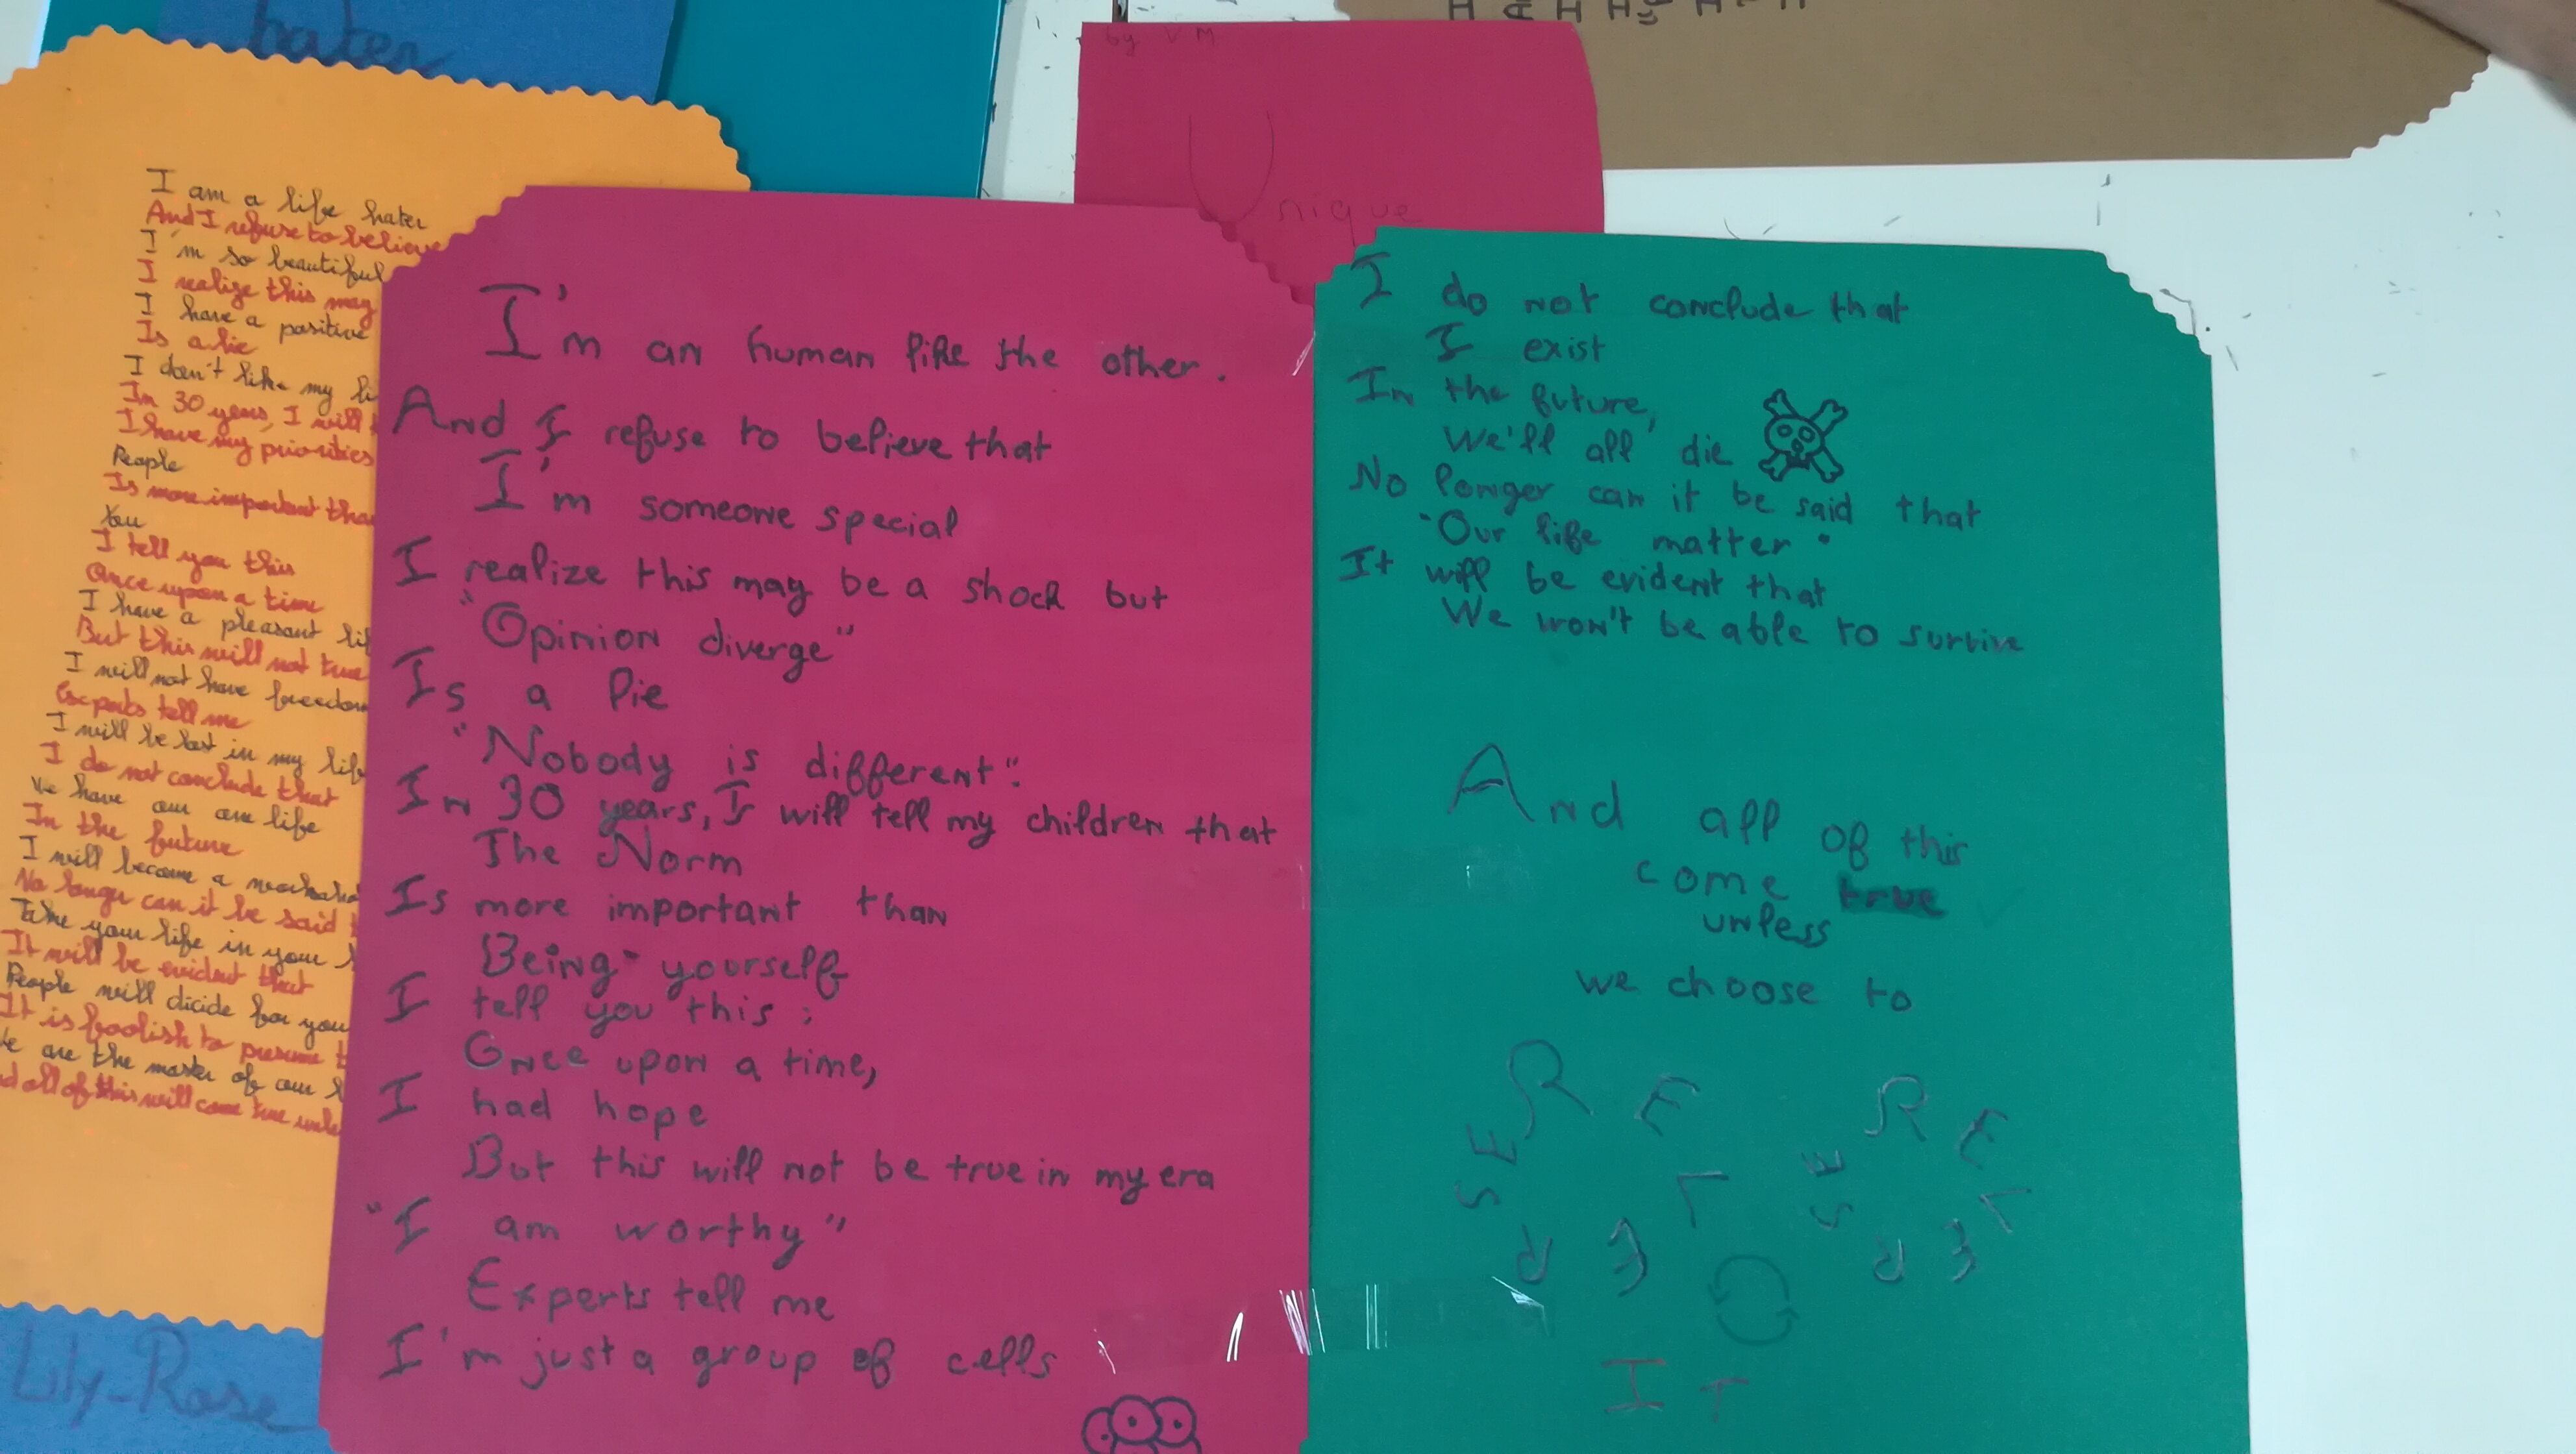 hater
by VM
Unique
I am a life hater
And I refuse to believe
I'm so beautiful
I realize this may
I have a positive
Is a lie
I don't like my li
In 30 years, I will
I have my priorities
People
Is more important than
You
I tell you this
Once upon a time
I have a pleasant lif
But this will not true
I will not have freedom
Experts tell me
I will be lost in my life
I do not conclude that
We have our own life
In the future
I will become a workaho
No longer can it be said t
Take your life in your
It will be evident that
People will dicide for you
It is foolish to presume t
We are the master of our l
nd all of this will come true unle
Lily-Rose
I'm an human like the other.
And I refuse to believe that
I'm someone special
I realize this may be a shock but
"Opinion diverge"
Is a lie
"Nobody is different".
In 30 years, I will tell my children that
The Norm
Is more important than
Being yourself
I tell you this :
Once upon a time,
I had hope
But this will not be true in my era
"I am worthy"
Experts tell me
I'm just a group of cells
I do not conclude that
I exist
In the future,
We'll all die
No longer can it be said that
"Our life matter"
It will be evident that
We won't be able to survive
And all of this
come true
unless
we choose to
REVERSE REVERSE
IT